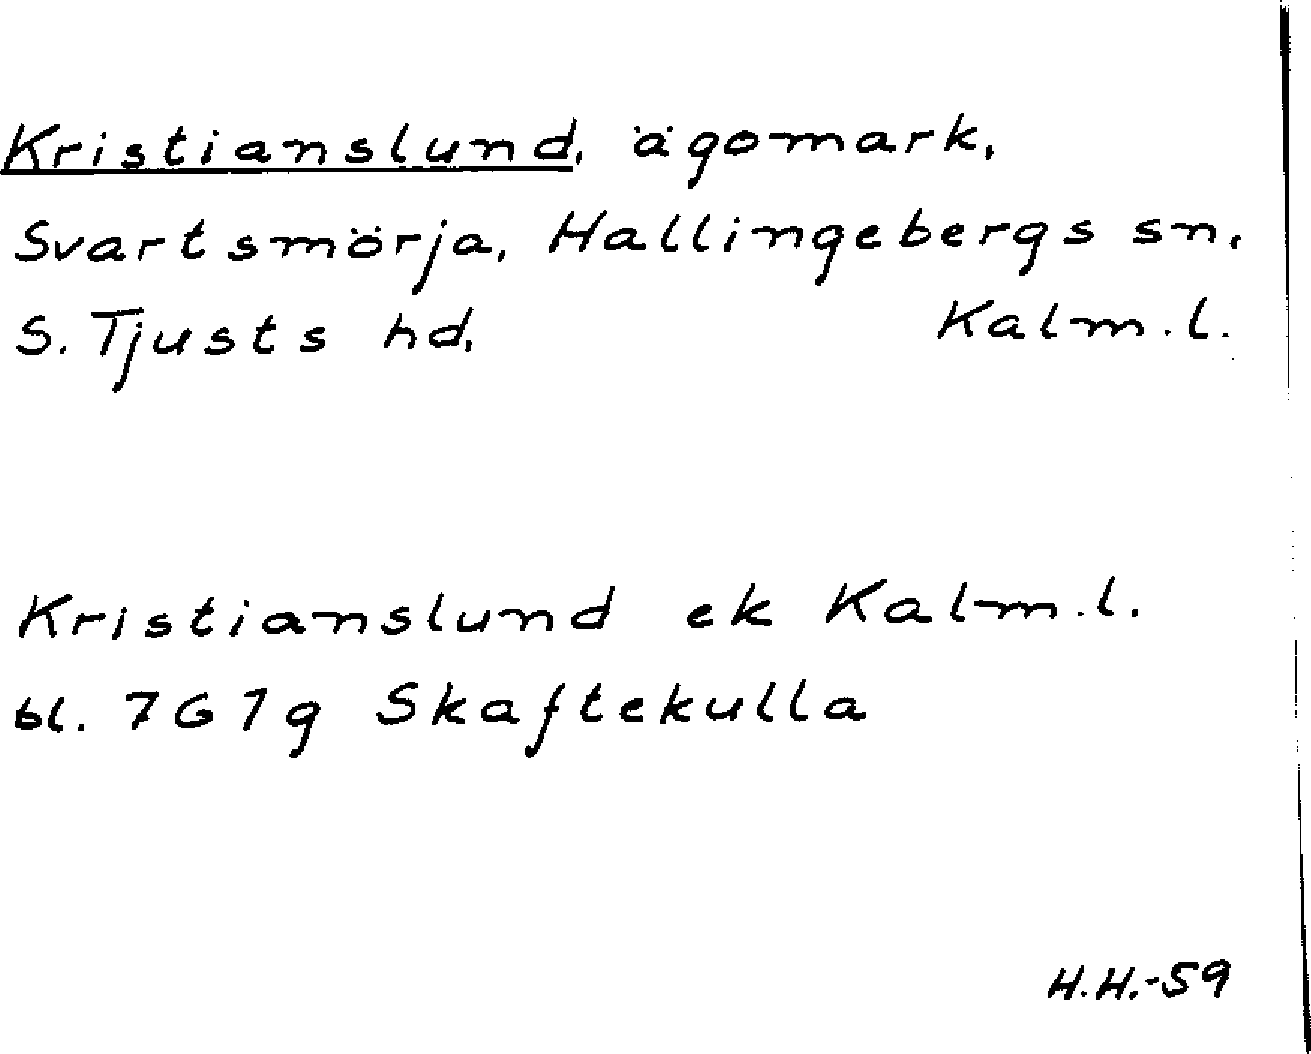 Kristianslund, ägomark,
Svartsmörja, Hallingebergs sn,
S. Tjusts hd, Kalm.l.
Kristianslund ek Kalm.l.
bl. 7G7g Skaftekulla
H.H.-59